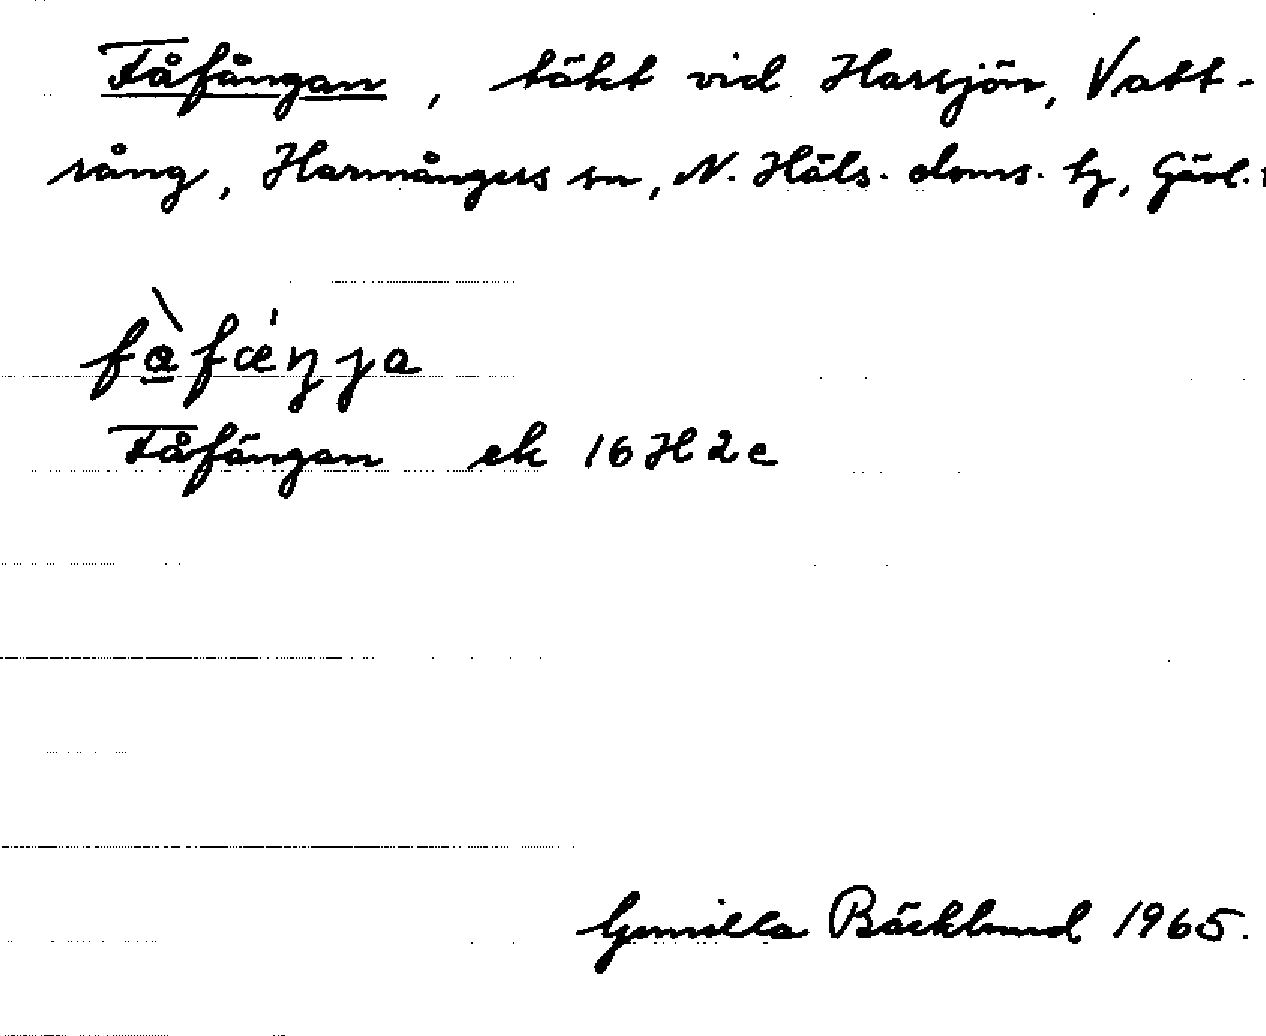 Fåfängan, täkt vid Harsjön, Vatt-
rång, Harmångers sn, N. Häls. doms. tg, Gävl.
Fåfängan ek 16H2c
Gunilla Bäcklund 1965.